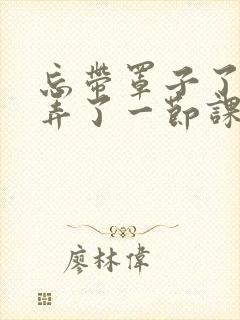 忘帶罩子了
弄了一節課
廖林偉